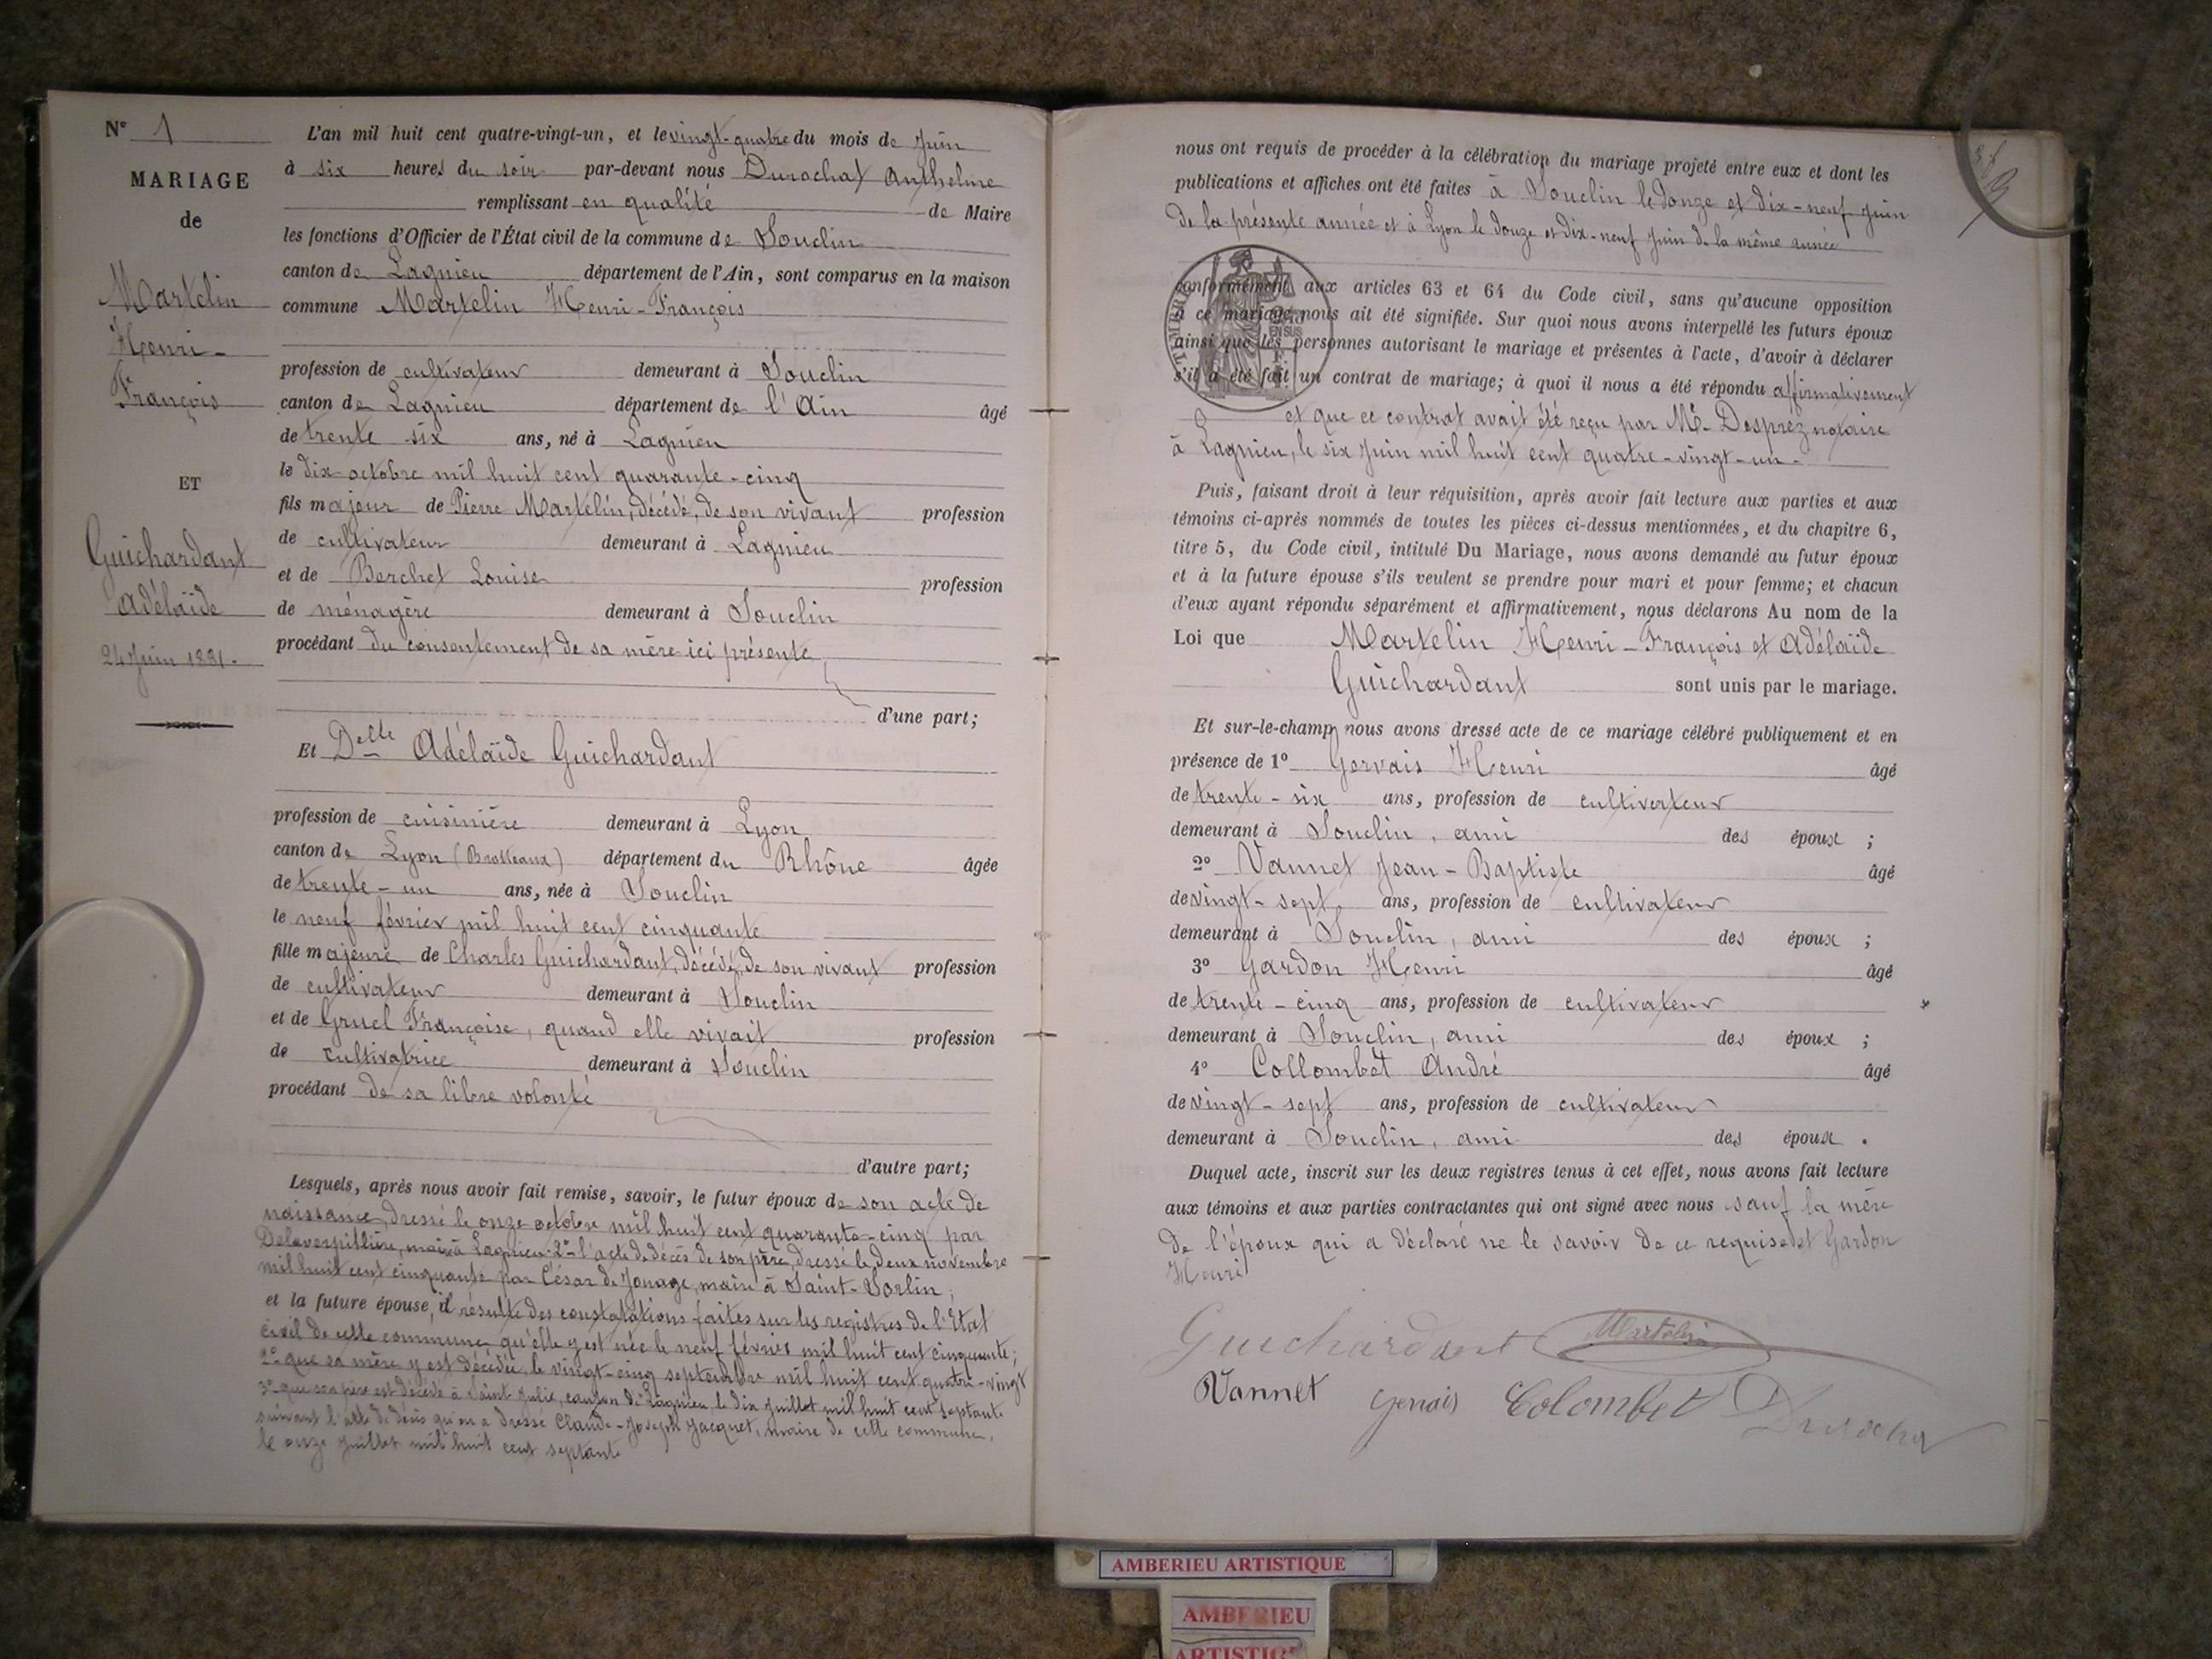 N° 1
MARIAGE
de
Martelin
Henri-
François
ET
Guichardant
Adélaïde
24 Juin 1881.
L'an mil huit cent quatre-vingt-un, et le vingt-quatre du mois de Juin
à six heures du soir par-devant nous Durochat Anthelme
remplissant en qualité de Maire
les fonctions d'Officier de l'État civil de la commune de Souclin
canton de Lagnieu département de l'Ain, sont comparus en la maison
commune Martelin Henri-François
profession de cultivateur demeurant à Souclin
canton de Lagnieu département de l'Ain âgé
de trente six ans, né à Lagnieu
le dix octobre mil huit cent quarante-cinq
fils majeur de Pierre Martelin, décédé, de son vivant profession
de cultivateur demeurant à Lagnieu
et de Berchet Louise profession
de ménagère demeurant à Souclin
procédant du consentement de sa mère ici présente
d'une part;
Et Delle Adélaïde Guichardant
profession de cuisinière demeurant à Lyon
canton de Lyon (Brotteaux) département du Rhône âgée
de trente-un ans, née à Souclin
le neuf février mil huit cent cinquante
fille majeure de Charles Guichardant, décédé, de son vivant profession
de cultivateur demeurant à Souclin
et de Gruel Françoise, quand elle vivait profession
de cultivatrice demeurant à Souclin
procédant de sa libre volonté
d'autre part;
Lesquels, après nous avoir fait remise, savoir, le futur époux de son acte de
naissance, dressé le onze octobre mil huit cent quarante-cinq par
Delaverpillière, maire à Lagnieu 2° l'acte de décès de son père, dressé le deux novembre
mil huit cent cinquante par César de Jonage, maire à Saint-Sorlin,
et la future épouse, il résulte des constatations faites sur les registres de l'Etat
civil de cette commune qu'elle y est née le neuf février mil huit cent cinquante;
2° que sa mère y est décédée le vingt-cinq septembre mil huit cent quatre-vingt
3° que son père est décédé à Saint-Julie, canton de Lagnieu, le dix juillet mil huit cent septante
suivant l'acte de décès qu'en a dressé Claude-Joseph Jacquet, maire de cette commune,
le onze juillet mil huit cent septante
nous ont requis de procéder à la célébration du mariage projeté entre eux et dont les
publications et affiches ont été faites à Souclin le douze et dix-neuf Juin
de la présente année et à Lyon le douze et dix-neuf Juin de la même année
conformément aux articles 63 et 64 du Code civil, sans qu'aucune opposition
à ce mariage nous ait été signifiée. Sur quoi nous avons interpellé les futurs époux
ainsi que les personnes autorisant le mariage et présentes à l'acte, d'avoir à déclarer
s'il a été fait un contrat de mariage; à quoi il nous a été répondu affirmativement
et que ce contrat avait été reçu par Me Desprez notaire
à Lagnieu, le six Juin mil huit cent quatre-vingt-un-
Puis, faisant droit à leur réquisition, après avoir fait lecture aux parties et aux
témoins ci-après nommés de toutes les pièces ci-dessus mentionnées, et du chapitre 6,
titre 5, du Code civil, intitulé Du Mariage, nous avons demandé au futur époux
et à la future épouse s'ils veulent se prendre pour mari et pour femme; et chacun
d'eux ayant répondu séparément et affirmativement, nous déclarons Au nom de la
Loi que Martelin Henri-François et Adélaïde
Guichardant sont unis par le mariage.
Et sur-le-champ nous avons dressé acte de ce mariage célébré publiquement et en
présence de 1° Gervais Henri âgé
de trente-six ans, profession de cultivateur
demeurant à Souclin, ami des époux ;
2° Vannet Jean-Baptiste âgé
de vingt-sept ans, profession de cultivateur
demeurant à Souclin, ami des époux ;
3° Gardon Henri âgé
de trente-cinq ans, profession de cultivateur
demeurant à Souclin, ami des époux ;
4° Collombet André âgé
de vingt-sept ans, profession de cultivateur
demeurant à Souclin, ami des époux .
Duquel acte, inscrit sur les deux registres tenus à cet effet, nous avons fait lecture
aux témoins et aux parties contractantes qui ont signé avec nous sauf la mère
de l'époux qui a déclaré ne le savoir de ce requise et Gardon
Henri
Guichardant Martelin
Vannet Gervais Colombet Durochat
AMBERIEU ARTISTIQUE
AMBERIEU
ARTISTIQUE